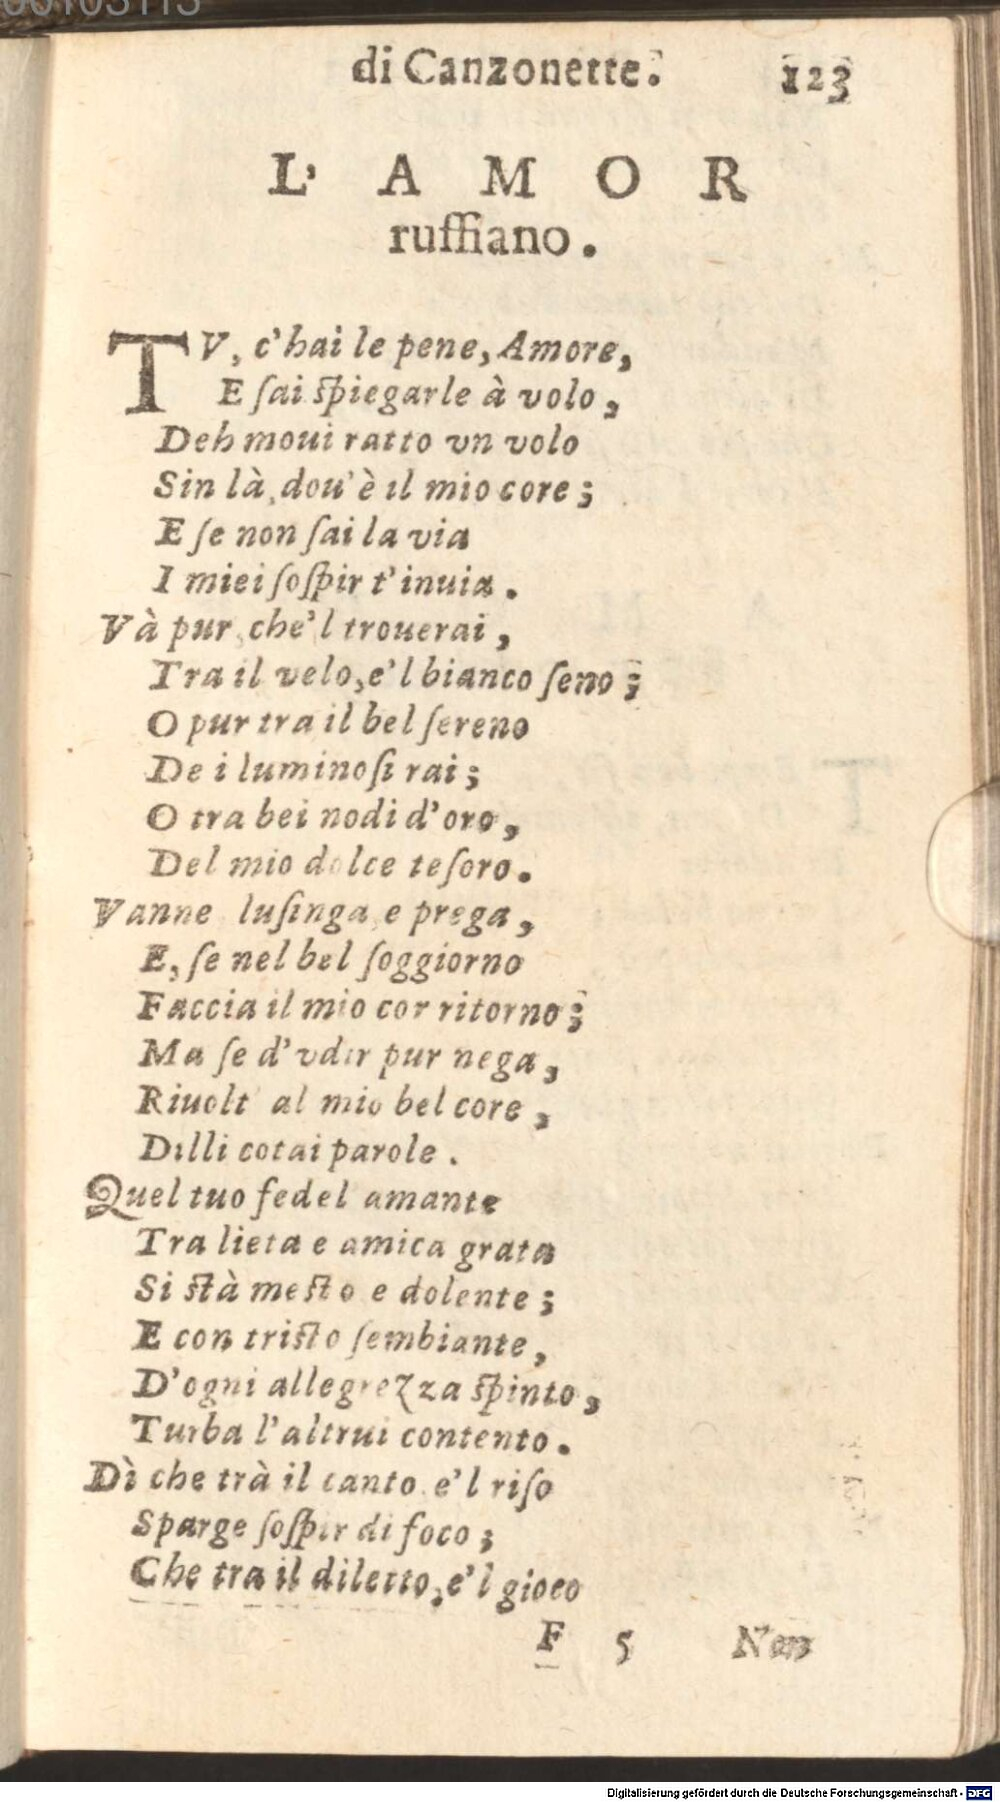 di Canzonette. 123
L' A M O R
ruffiano.
TV, c'hai le pene, Amore,
E ſai ſpiegarle à volo,
Deh moui ratto vn volo
Sin là, dou' è il mio core;
E ſe non ſai la via
I miei ſoſpir t'inuia.
Và pur, che'l trouerai,
Tra il velo, e'l bianco ſeno;
O pur tra il bel ſereno
De i luminoſi rai;
O tra bei nodi d'oro,
Del mio dolce teſoro.
Vanne luſinga, e prega,
E, ſe nel bel ſoggiorno
Faccia il mio cor ritorno;
Ma ſe d'vdir pur nega,
Riuolt' al mio bel core,
Dilli cotai parole.
Quel tuo fedel amante
Tra lieta e amica grata
Si ſtà meſto e dolente;
E con triſto ſembiante,
D'ogni allegrezza ſpinto,
Turba l'altrui contento.
Dì che trà il canto e'l riſo
Sparge ſoſpir di foco;
Che tra il diletto, e'l gioco
F 5 Non
Digitalisierung gefördert durch die Deutsche Forschungsgemeinschaft - DFG